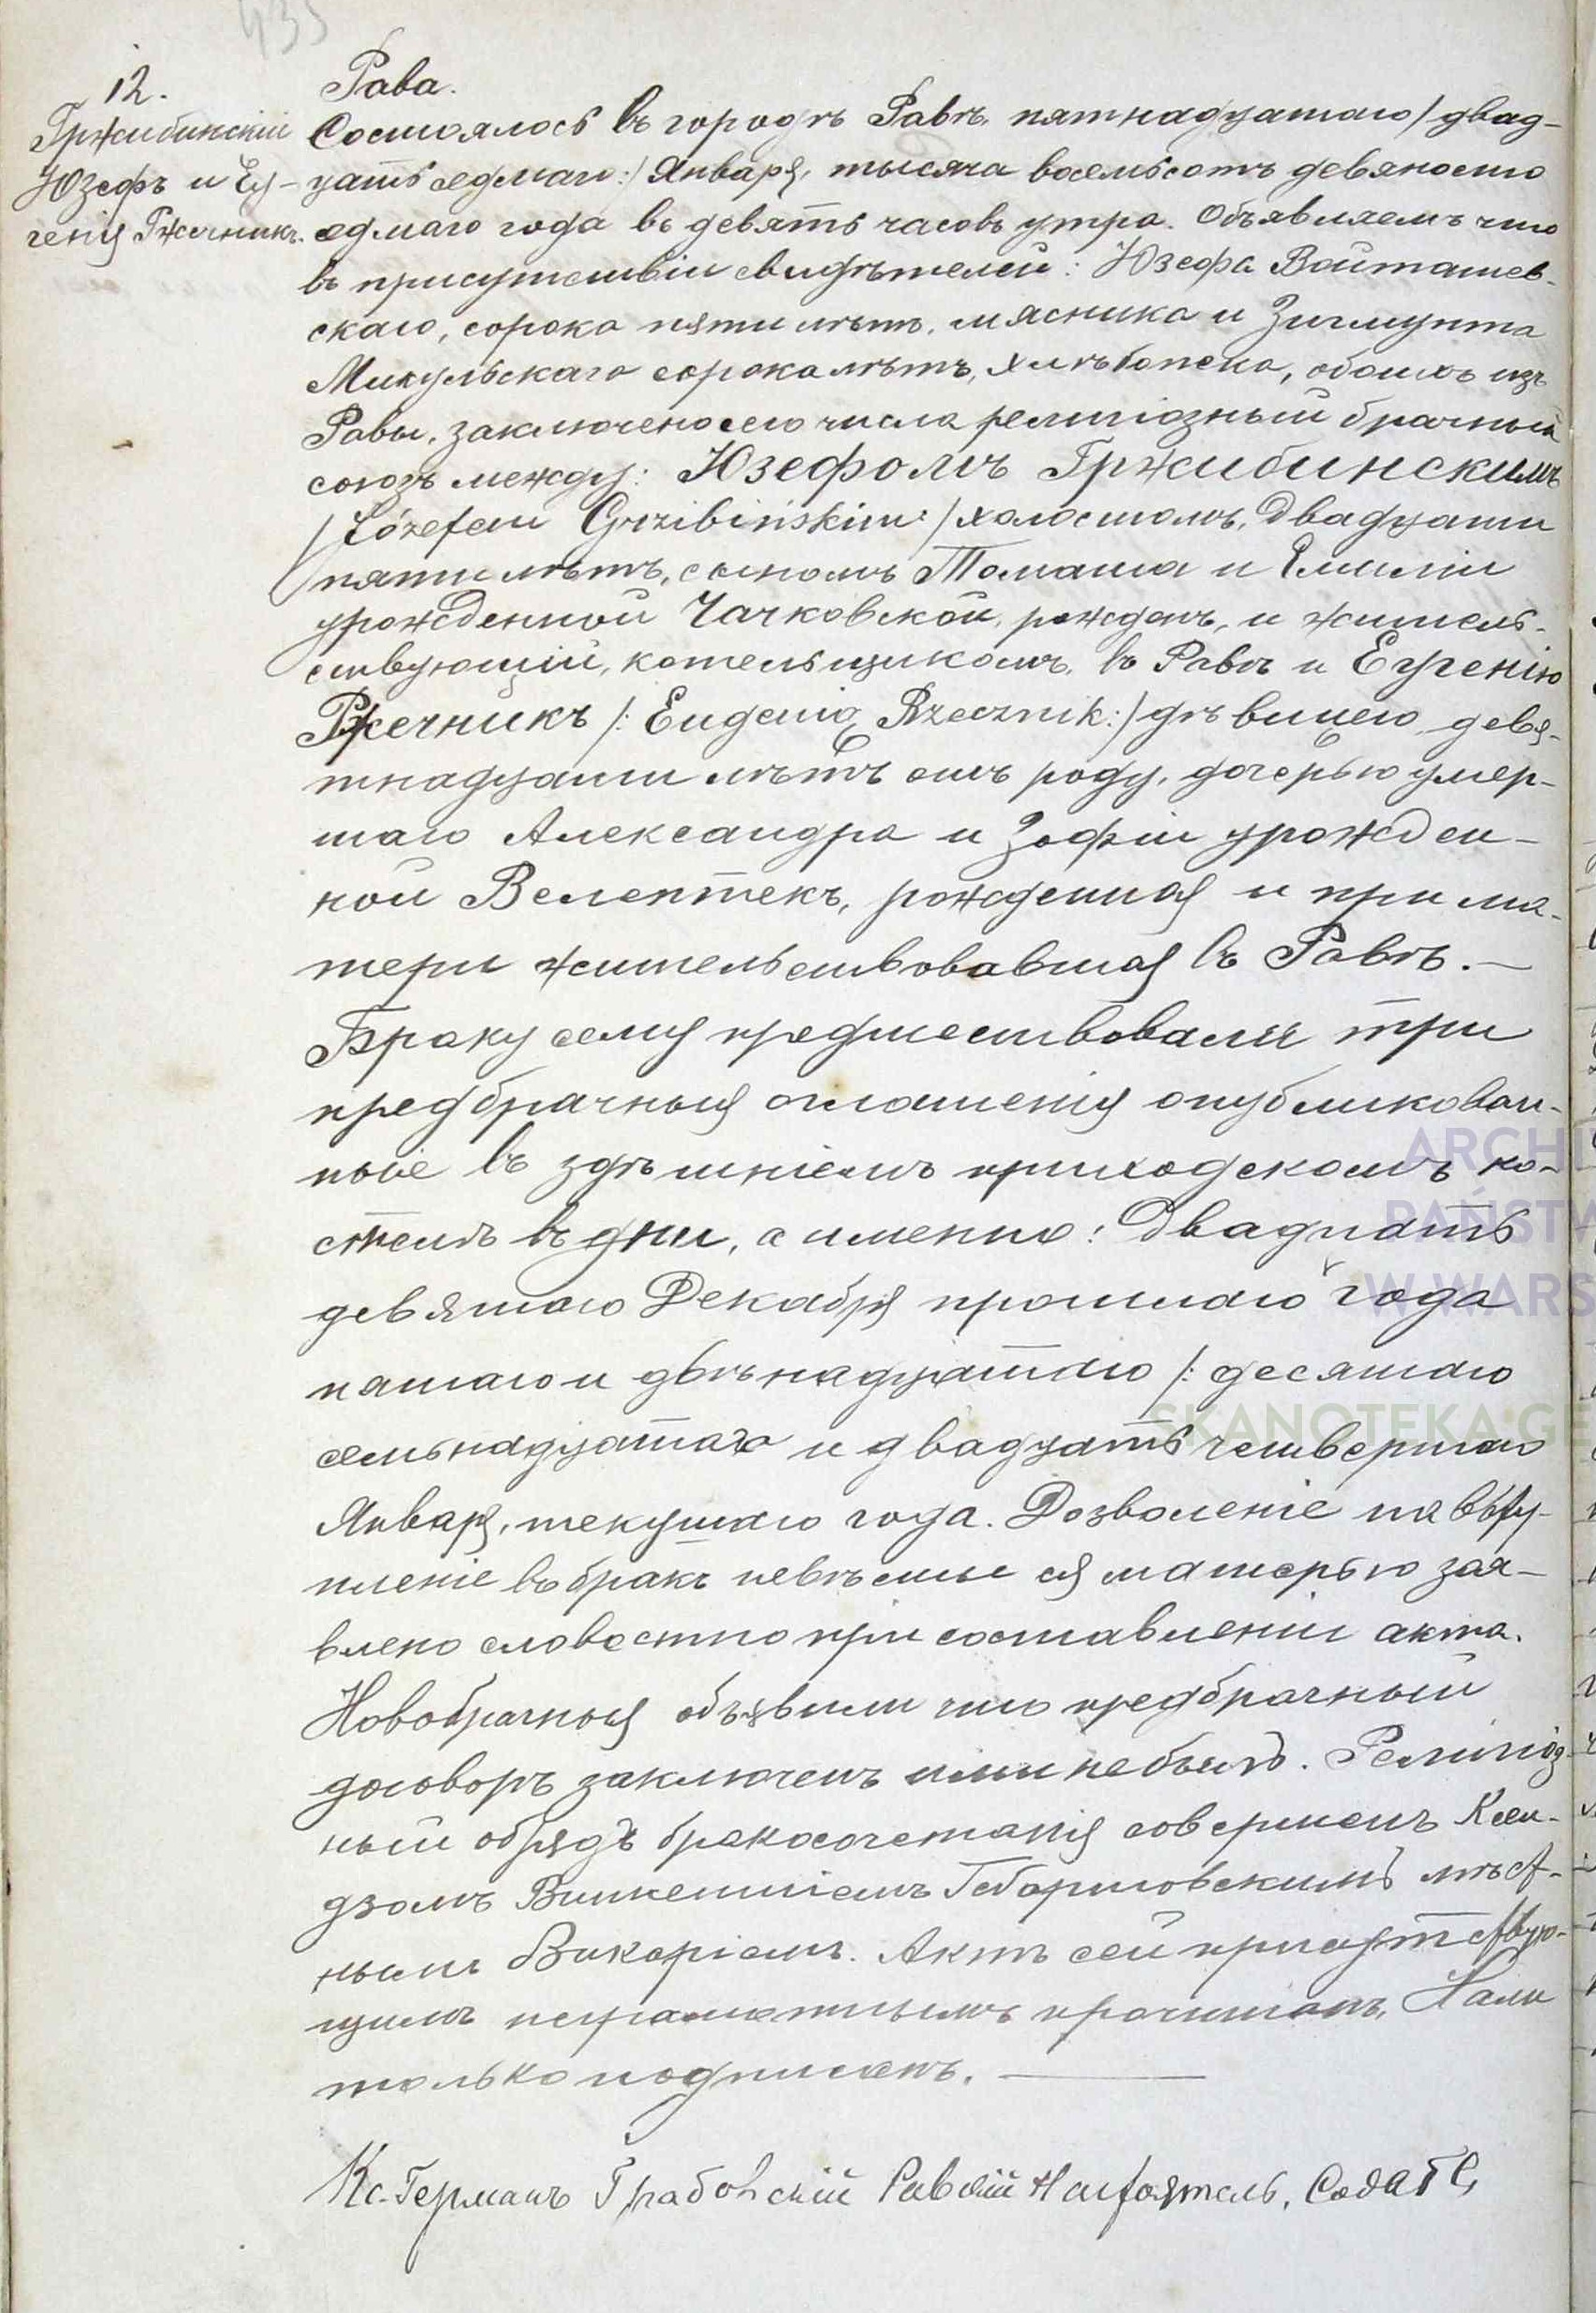 435
12.
Гржибинскій
Юзефъ и Еу-
генія Ржечникъ.
Рава.
Состоялось въ городѣ Равѣ, пятнадцатаго / двад-
цать седмаго :/ Января, тысяча восемьсотъ девяносто
седмаго года въ девять часовъ утра. Объявляемъ что
въ присутствіи свидѣтелей: Юзефа Войташев-
скаго, сорока пяти лѣтъ, мясника и Зигмунта
Микульскаго сорока лѣтъ, хлѣбопека, обоихъ изъ
Равы, заключено сего числа религіозный брачный
союзъ между: Юзефомъ Гржибинскимъ
/ Józefem Grzibińskim :/ холостомъ, двадцати
пяти лѣтъ, сыномъ Томаша и Емиліи
урожденной Чачковской, рожденъ, и житель-
ствующій, котельщикомъ, въ Равѣ и Еугенію
Ржечникъ /: Eugenią Rzecznik :/ дѣвицею, девя-
тнадцати лѣтъ отъ роду, дочерью умер-
шаго Александра и Зофіи урожден-
ной Велептекъ, рожденная и при ма-
тери жительствовавшая въ Равѣ.—
Браку сему предшествовали три
предбрачныя оглашенія опубликован-
ныіе въ здѣшніемъ приходскомъ ко-
стелѣ въ дни, а именно: двадцать
девятаго Декабря прошлаго года
пятаго и двѣнадцатаго /: десятаго
семьнадцатаго и двадцать четвертаго
Января, текущаго года. Дозволеніе на всту-
пленіе въ бракъ невѣсты ея матерью зая-
влено словостно при составленіи акта.
Новобрачныя объявили что предбрачный
договоръ заключенъ ими небылъ. Религіоз-
ный обрядъ бракосочетанія совершенъ Ксен-
дзомъ Винкентіемъ Гебартовскимъ мѣст-
нымъ Викаріемъ. Актъ сей присутствую-
щимъ неграметнымъ прочитанъ, Нами
только подписанъ.
Кс. Германъ Грабовскій Равскій Настоятель, Содаг С,